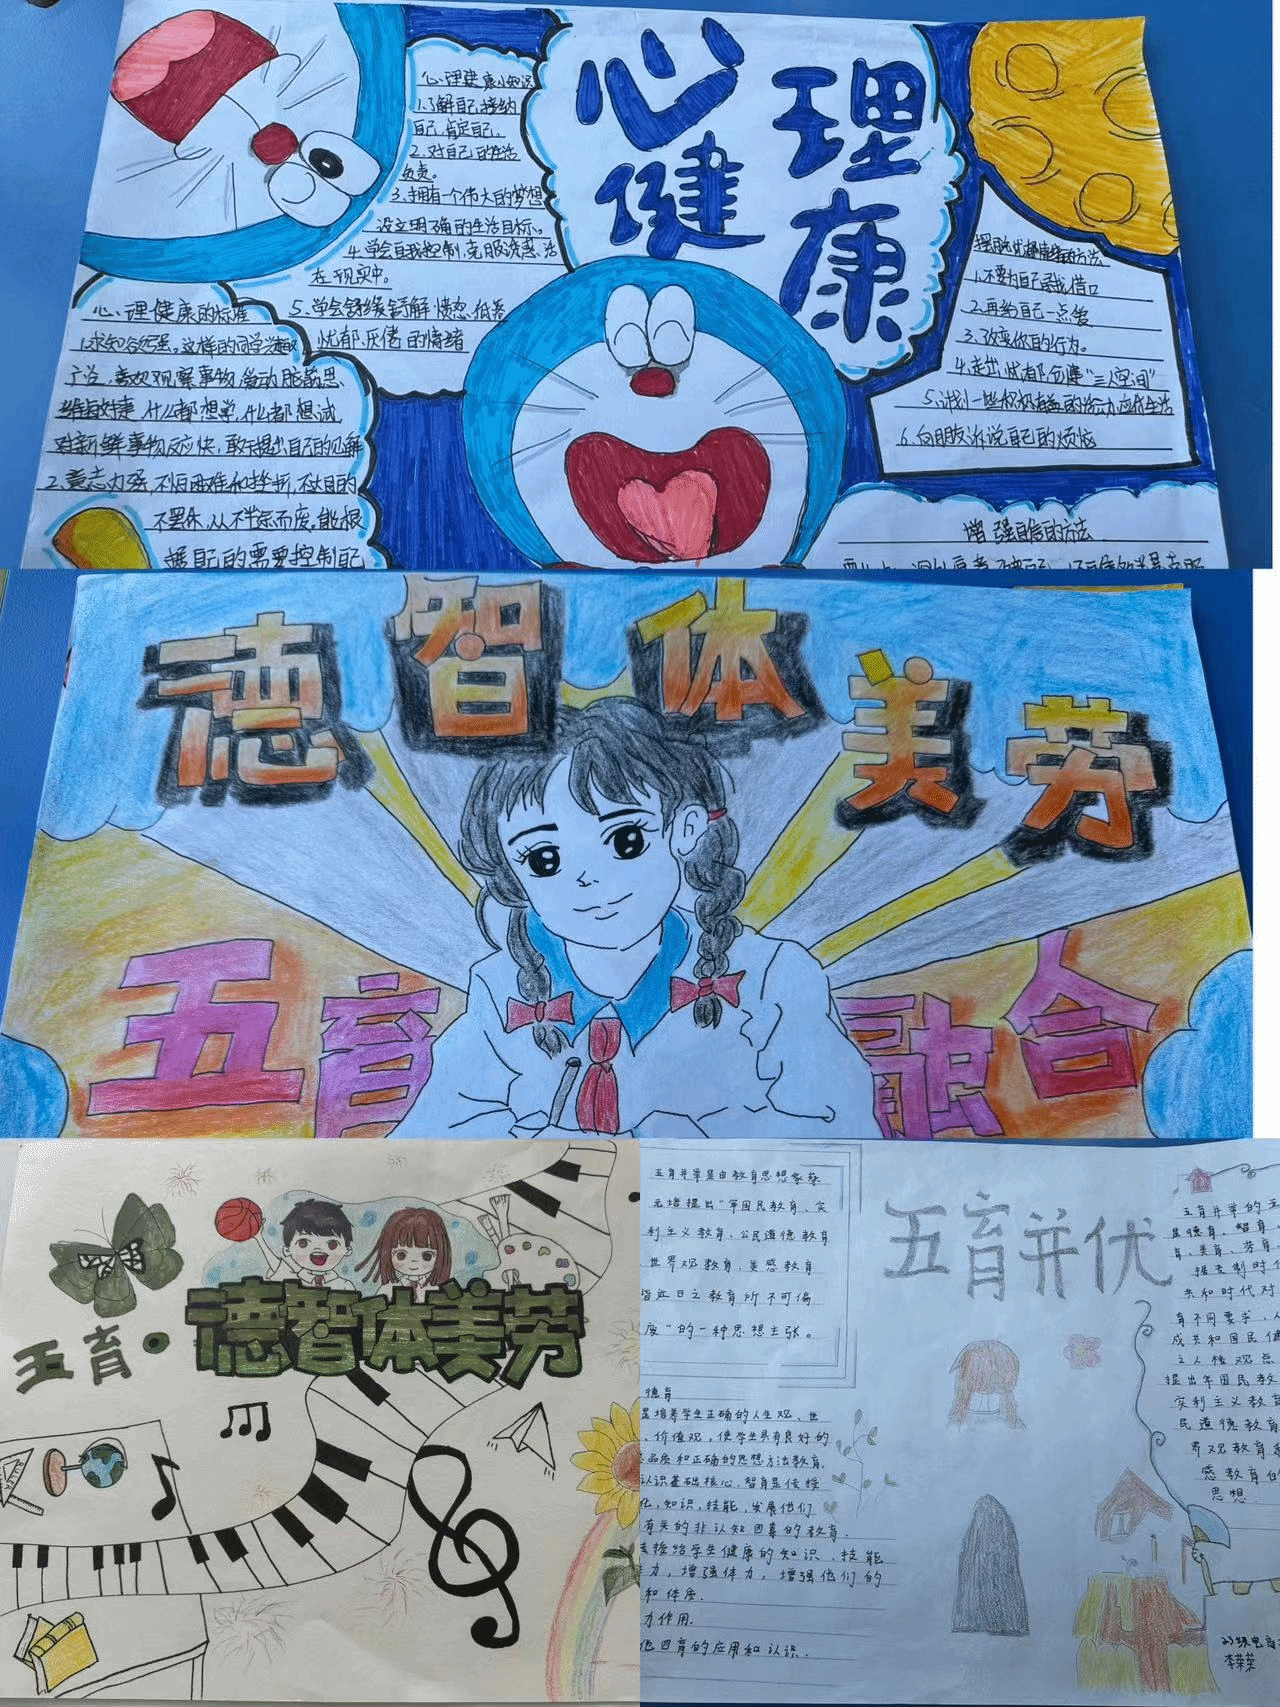 心理
健康
心理健康小知识
1.了解自己,接纳
自己,肯定自己。
2.对自己的生活
负责。
3.拥有一个伟大的梦想
设立明确的生活目标。
4.学会自我控制,克服诱惑,活
在现实中。
5.学会舒缓舒解愤怒、低落
忧郁、厌倦的情绪
心理健康的标准
1.求知欲强。这样的同学兴趣
广泛,喜欢观察事物,爱动脑筋思
什么都想学,什么都想试
对新鲜事物反应快,敢于提出自己的见解
2.意志力强,不怕困难和挫折,不达目的
不罢休,从不半途而废,能根
据自己的需要控制自己
1.不要为自己寻找借口
2.再给自己一点爱
3.改变你的行为。
4.走出忧郁,创建“三人空间”
5.计划一些积极有益的活动,应付生活
6.向朋友诉说自己的烦恼
增强自信的方法
德智体美劳
五育融合
五育·德智体美劳
RULER
五育并举是由教育思想家蔡
元培提出“军国民教育、实
利主义教育、公民道德教育
世界观教育、美感教育
皆近日之教育所不可偏
废”的一种思想主张。
五育并优
德育
是培养学生正确的人生观、世
、价值观,使学生具有良好的
品质和正确的思想方法教育,
认识基础核心,智育是传授
化,知识,技能,发展他们
有关的非认知因素的教育.
授给学生健康的知识、技能
力,增强体力,增强他们的
和体质.
力作用.
他四育的应用和认识.
五育并举的五
是德育、智育、
育、美育、劳育.
据专制时代
共和时代对
有不同要求,从
成共和国民健
之人格观点
提出军国民教
实利主义教育
民道德教育
界观教育和
感教育的
思想.
李荣荣